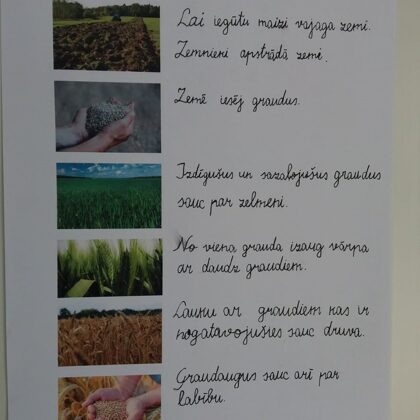 Lai iegūtu maizi vajaga zemi.
Zemnieki apstrādā zemi.
Zemē iesēj graudus.
Izdīgušus un sazaļojušus graudus
sauc par zelmeni.
No viena grauda izaug vārpa
ar daudz graudiem.
Lauku ar graudiem kas ir
nogatavojušies sauc druva.
Graudaugus sauc arī par
labību.